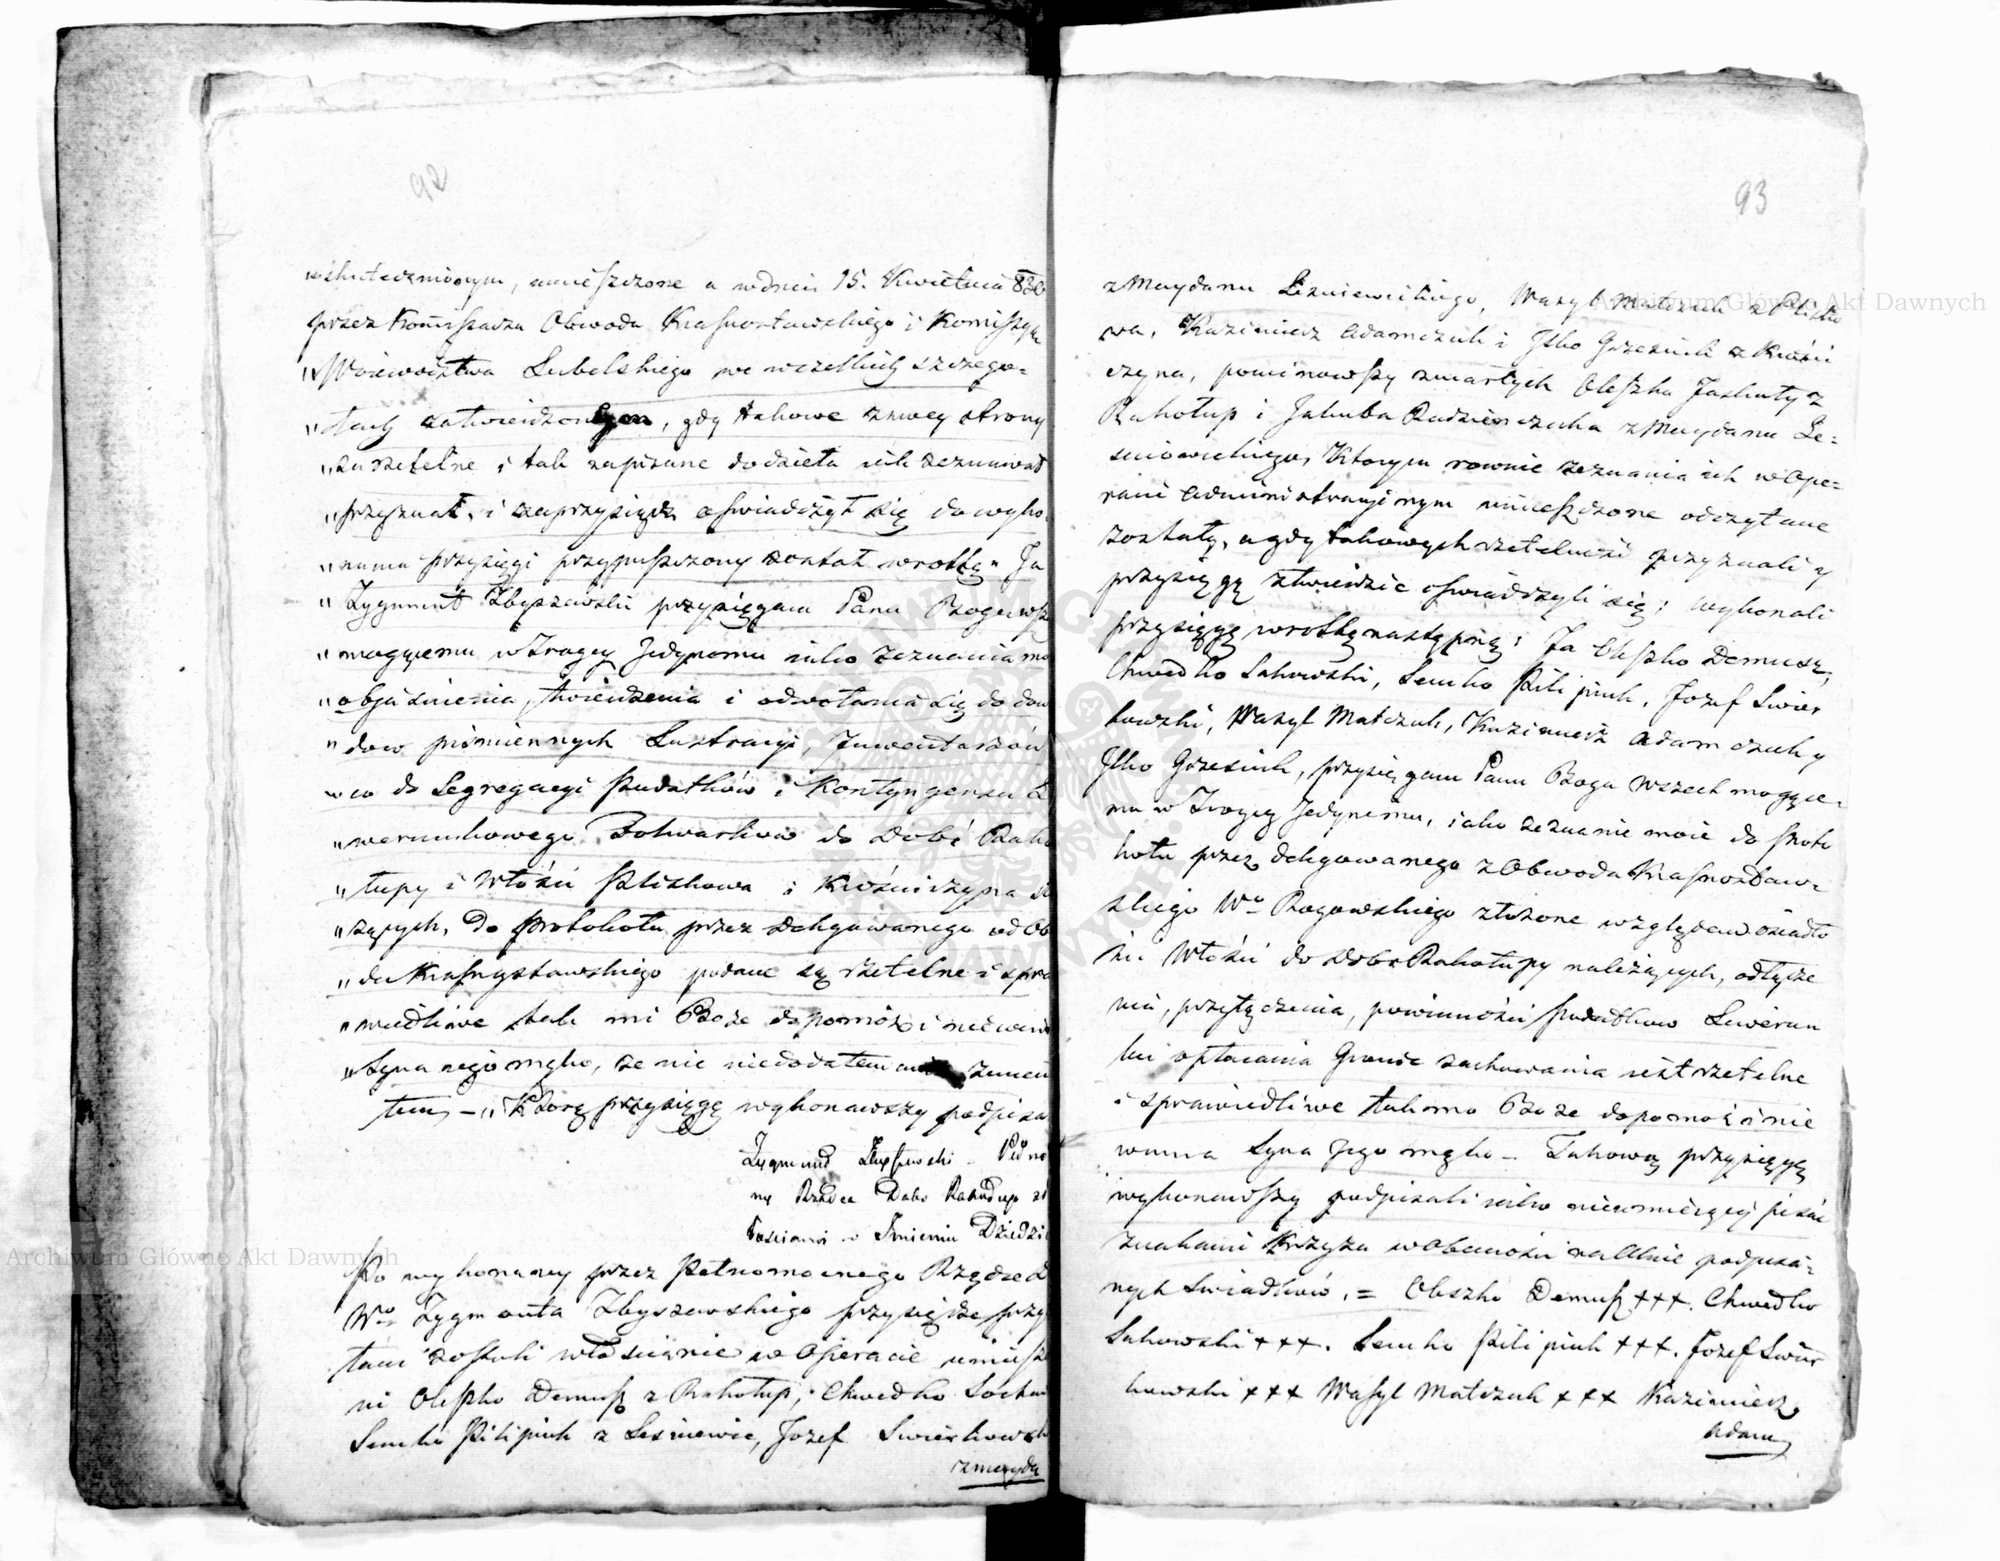 92
uskutecznionym, umieszczone a w dniu 15. Kwietnia 830
przez Kommissarza Obwodu Krasnostawskiego i Komissyę
„Woiewództwa Lubelskiego we wszelkich szczegó=
„łach zatwierdzonym, gdy takowe z swey strony
„za rzetelne i tak zapisane do dzieła ich zeznawał
„przyznał, i zaprzysiądz oświadczył się do wyko
„nania przysięgi przypuszczony został w rotę „Ja
„Zygmunt Zbyszewski przysięgam Panu Bogu wsze
„mogącemu w Troycy Jedynemu iako zeznania mo
„objaśnienia, twierdzenia i odwołania się do dow
„dow piśmiennych Lustracyi, Inwentarzów
„co do Segregacyi Podatków i Kontyngensu L
„werunkowego Folwarków do Dóbr Rako
„łupy i Włości Pliskowa i Kraśniczyna
„żących, do protokołu przez delegowanego od Ob
„du Krasnystawskiego podane są rzetelne i spra
„wiedliwe tak mi Boże dopomóż i niewin
„Syna iego męko, że nic niedodałem Zmien
tem, — „ Którą przysięgę wykonawszy podpisa
Zygmund Zbyszewski Pełno
ny Rządca Dobr Rakołup
łościami w Imieniu Dziedzi
Po wykonaney przez Pełnomocnego Rządcę D
Wo Zygmunta Zbyszewskiego przysiędze przy
łani zostali włościanie w Operacie umiesz
ni Oleszko Demusz z Rakołup, Chwedko Sochow
Semko Pilipiuk z Leśniewic, Jozef Swierkowsk
z mayda
93
z Maydanu Leśniewickiego, Wasyl Matczuk z Plisko
wa, Kazimierz Adamczuk i Jlko Grzesiuk z Kraśni
czyna, pominąwszy zmarłych Oleszka Jaskuły z
Rakołup i Jakuba Radzieńczuka z Maydanu Le=
śniowickiego, Ktorym rownie zeznania ich w Ope=
racie administracyinym umieszczone odczytane
zostały, a gdy takowych rzetelność przyznali y
przysięgą ztwierdzić oświadczyli się, wykonali
przysięgę w rotę następną: Ja Oleszko Demusz,
Chwedko Sakowski, Semko Pilipiuk, Jozef Swier
kowski, Wasyl Matczuk, Kazimierz Adamczuk y
Jlko Grzesiuk, przysięgam Panu Bogu wszechmogące=
mu w Troycy Jedynemu, iako zeznanie moie do proto
kołu przez delegowanego z Obwodu Krasnostaw=
skiego Wo Rogowskiego złożone względem osiadło
ści Włości do Dobr Rakołupy należących, odłącze
nia, przyłączenia, powinności podatkow Liwerun
ku opłacania Granic zachowania iest rzetelne
i sprawiedliwe tak mi Boże dopomóż i nie
winna Syna Jego męko — Takową przysięgę
wykonawszy podpisali iako nieumieiący pisać
znakami Krzyża w obecności podpisa=
nych Świadków. = Oleszko Demusz +++. Chwedko
Sakowski +++. Semko Pilipiuk +++. Jozef Swier
kowski +++ Wasyl Matczuk +++ Kazimierz
Adam
Archiwum Główne Akt Dawnych
Archiwum Główne Akt Dawnych